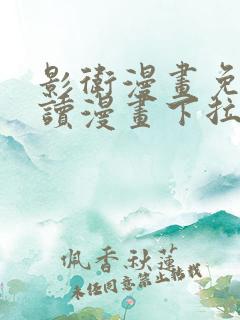 影衛漫畫免
讀漫畫下拉
佩香秋蓮
未经同意禁止转载